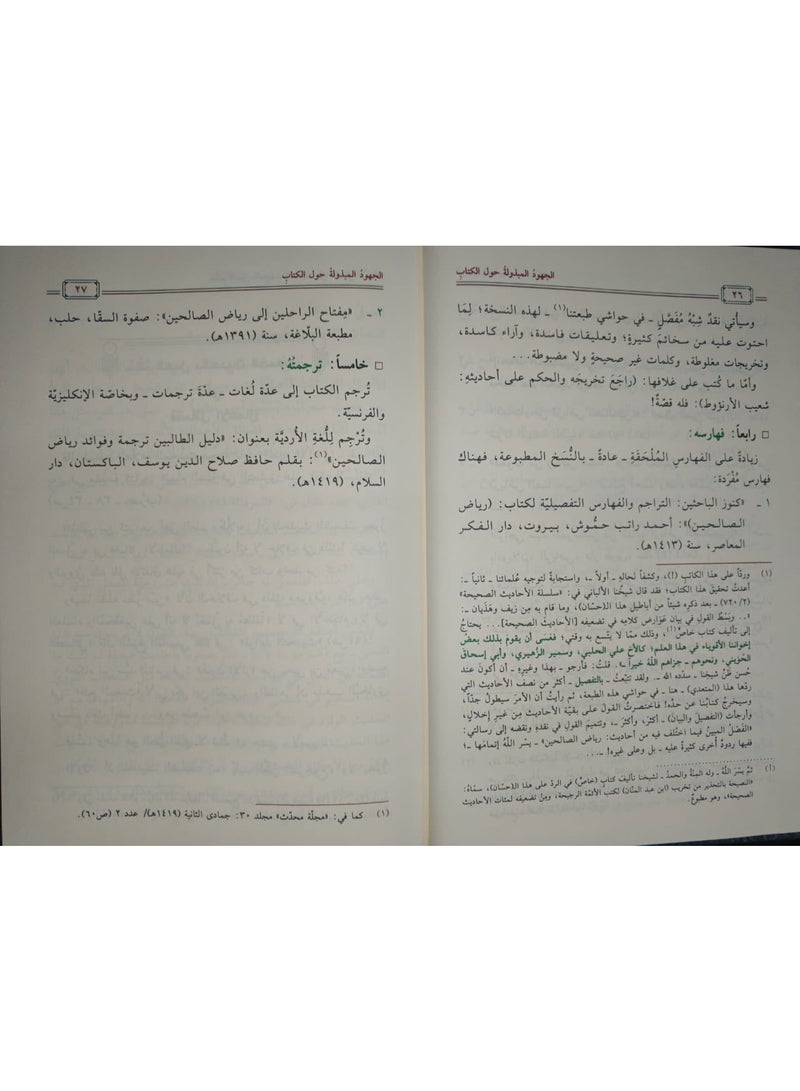 الجهودُ المبذولةُ حول الكتاب
٢٦
وسيأتي نقدٌ شِبْهُ مُفَصَّلٍ ـ في حواشي طبعتنا(١) ـ لهذه النسخة؛ لِمَا
احتوت عليه من سخائمَ كثيرةٍ؛ وتعليقات فاسدة، وآراء كاسدة،
وتخريجات مغلوطة، وكلمات غير صحيحةٍ ولا مضبوطة...
وأمّا ما كُتب على غلافها: (راجَعَ تخريجَه والحكم على أحاديثهِ:
شعيب الأرنؤوط): فله قصّةٌ!
□ رابعاً: فهارسه:
زيادةً على الفهارسِ المُلْحَقةِ ـ عادةً ـ بالنُّسَخ المطبوعة، فهناك
فهارس مُفْرَدة:
١ ـ «كنوز الباحثين: التراجم والفهارس التفصيليّة لكتاب: (رياض
الصالحين)»: أحمد راتب حمُّوش، بيروت، دار الفكر
المعاصر، سنة (١٤١٣هـ).
(١) وردّاً على هذا الكاتب (!)، وكشفاً لحالهِ ـ أولاً ـ، واستجابةً لتوجيه عُلمائنا ـ ثانياً ـ:
أعدتُ تحقيقَ هذا الكتاب؛ فقد قال شيخُنا الألباني في: «سلسلة الأحاديث الصحيحة»
(٧٢٠/٢) ـ بعد ذكرِه شيئاً من أباطيل هذا (الحسّان)، وما قام به مِن زيف وهَذَيان ـ:
«.. وبَسْطُ القولِ في بيان عَوَارِض كلامِه في تضعيفه [الأحاديثَ الصحيحة]... يحتاجُ
إلى تأليف كتاب خاص(أ)، وذلك ممّا لا يتّسع به وقتي؛ فعَسى أن يقومَ بذلك بعضُ
إخواننا الأقوياء في هذا العلم؛ كالأخ علي الحلبي، وسمير الزُّهيري، وأبي إسحاق
الحُويني، ونحوهم ـ جزاهم اللَّهُ خيراً ـ». قلتُ: فأرجو ـ بهذا وغيرِه ـ أن أكونَ عند
حُسن ظَنِّ شيخنا ـ سدَّده الله ـ. ولقد تتبّعتُ ـ بالتفصيل ـ أكثر من نصف الأحاديث التي
ردّها هذا (المتعدي) ـ هنا ـ في حواشي هذه الطبعة، ثم رأيتُ أن الأمرَ سيطولُ جدّاً،
وسيخرجُ كتابُنا عن حدّه! فاختصرتُ القولَ على بقيّة الأحاديث مِن غيرِ إخلال،
وأرجأت (التفصيلَ والبيانَ) ـ أكثرَ، وأكثرَ ـ، وتتميمَ القولِ في نقدِه ونقضه إلى رسالتي:
«القَصْلُ المبينُ فيما اختُلف فيه من أحاديث: رياض الصالحين» ـ يسّر اللَّهُ إتمامَها ـ؛
ففيها ردودٌ أخرى كثيرةٌ عليه ـ بل وعلى غيره! ـ...
(أ) ثمَّ يسّرَ اللَّهُ ـ وله المِنَّةُ والحمدُ ـ لشيخنا تأليفَ كتابٍ (خاصٍّ) في الردِّ على هذا (الحسّان)، سمّاهُ:
«النصيحة بالتحذير من تخريب (ابن عبد المنّان) لكتب الأئمّة الرجيحة، ومِنْ تضعيفه لمئات الأحاديث
الصحيحة»، وهو مطبوعٌ.
الجهودُ المبذولةُ حول الكتاب
٢٧
٢ ـ «مِفتاح الراحلين إلى رياض الصالحين»: صفوة السقّا، حلب،
مطبعة البلاغة، سنة (١٣٩١هـ).
□ خامساً: ترجمتُهُ:
تُرجم الكتاب إلى عدّة لُغات ـ عدّةَ ترجمات ـ وبخاصّة الإنكليزيّة
والفرنسيّة.
وتُرْجِم لِلُّغةِ الأُرديَّة بعنوان: «دليل الطالبين ترجمة وفوائد رياض
الصالحين»(١): بقلم حافظ صلاح الدين يوسف، الباكستان، دار
السلام، (١٤١٩هـ).
(١) كما في: «مجلّة محدّث» مجلد ٣٠: جمادى الثانية (١٤١٩هـ)/ عدد ٢ (ص٦٠).